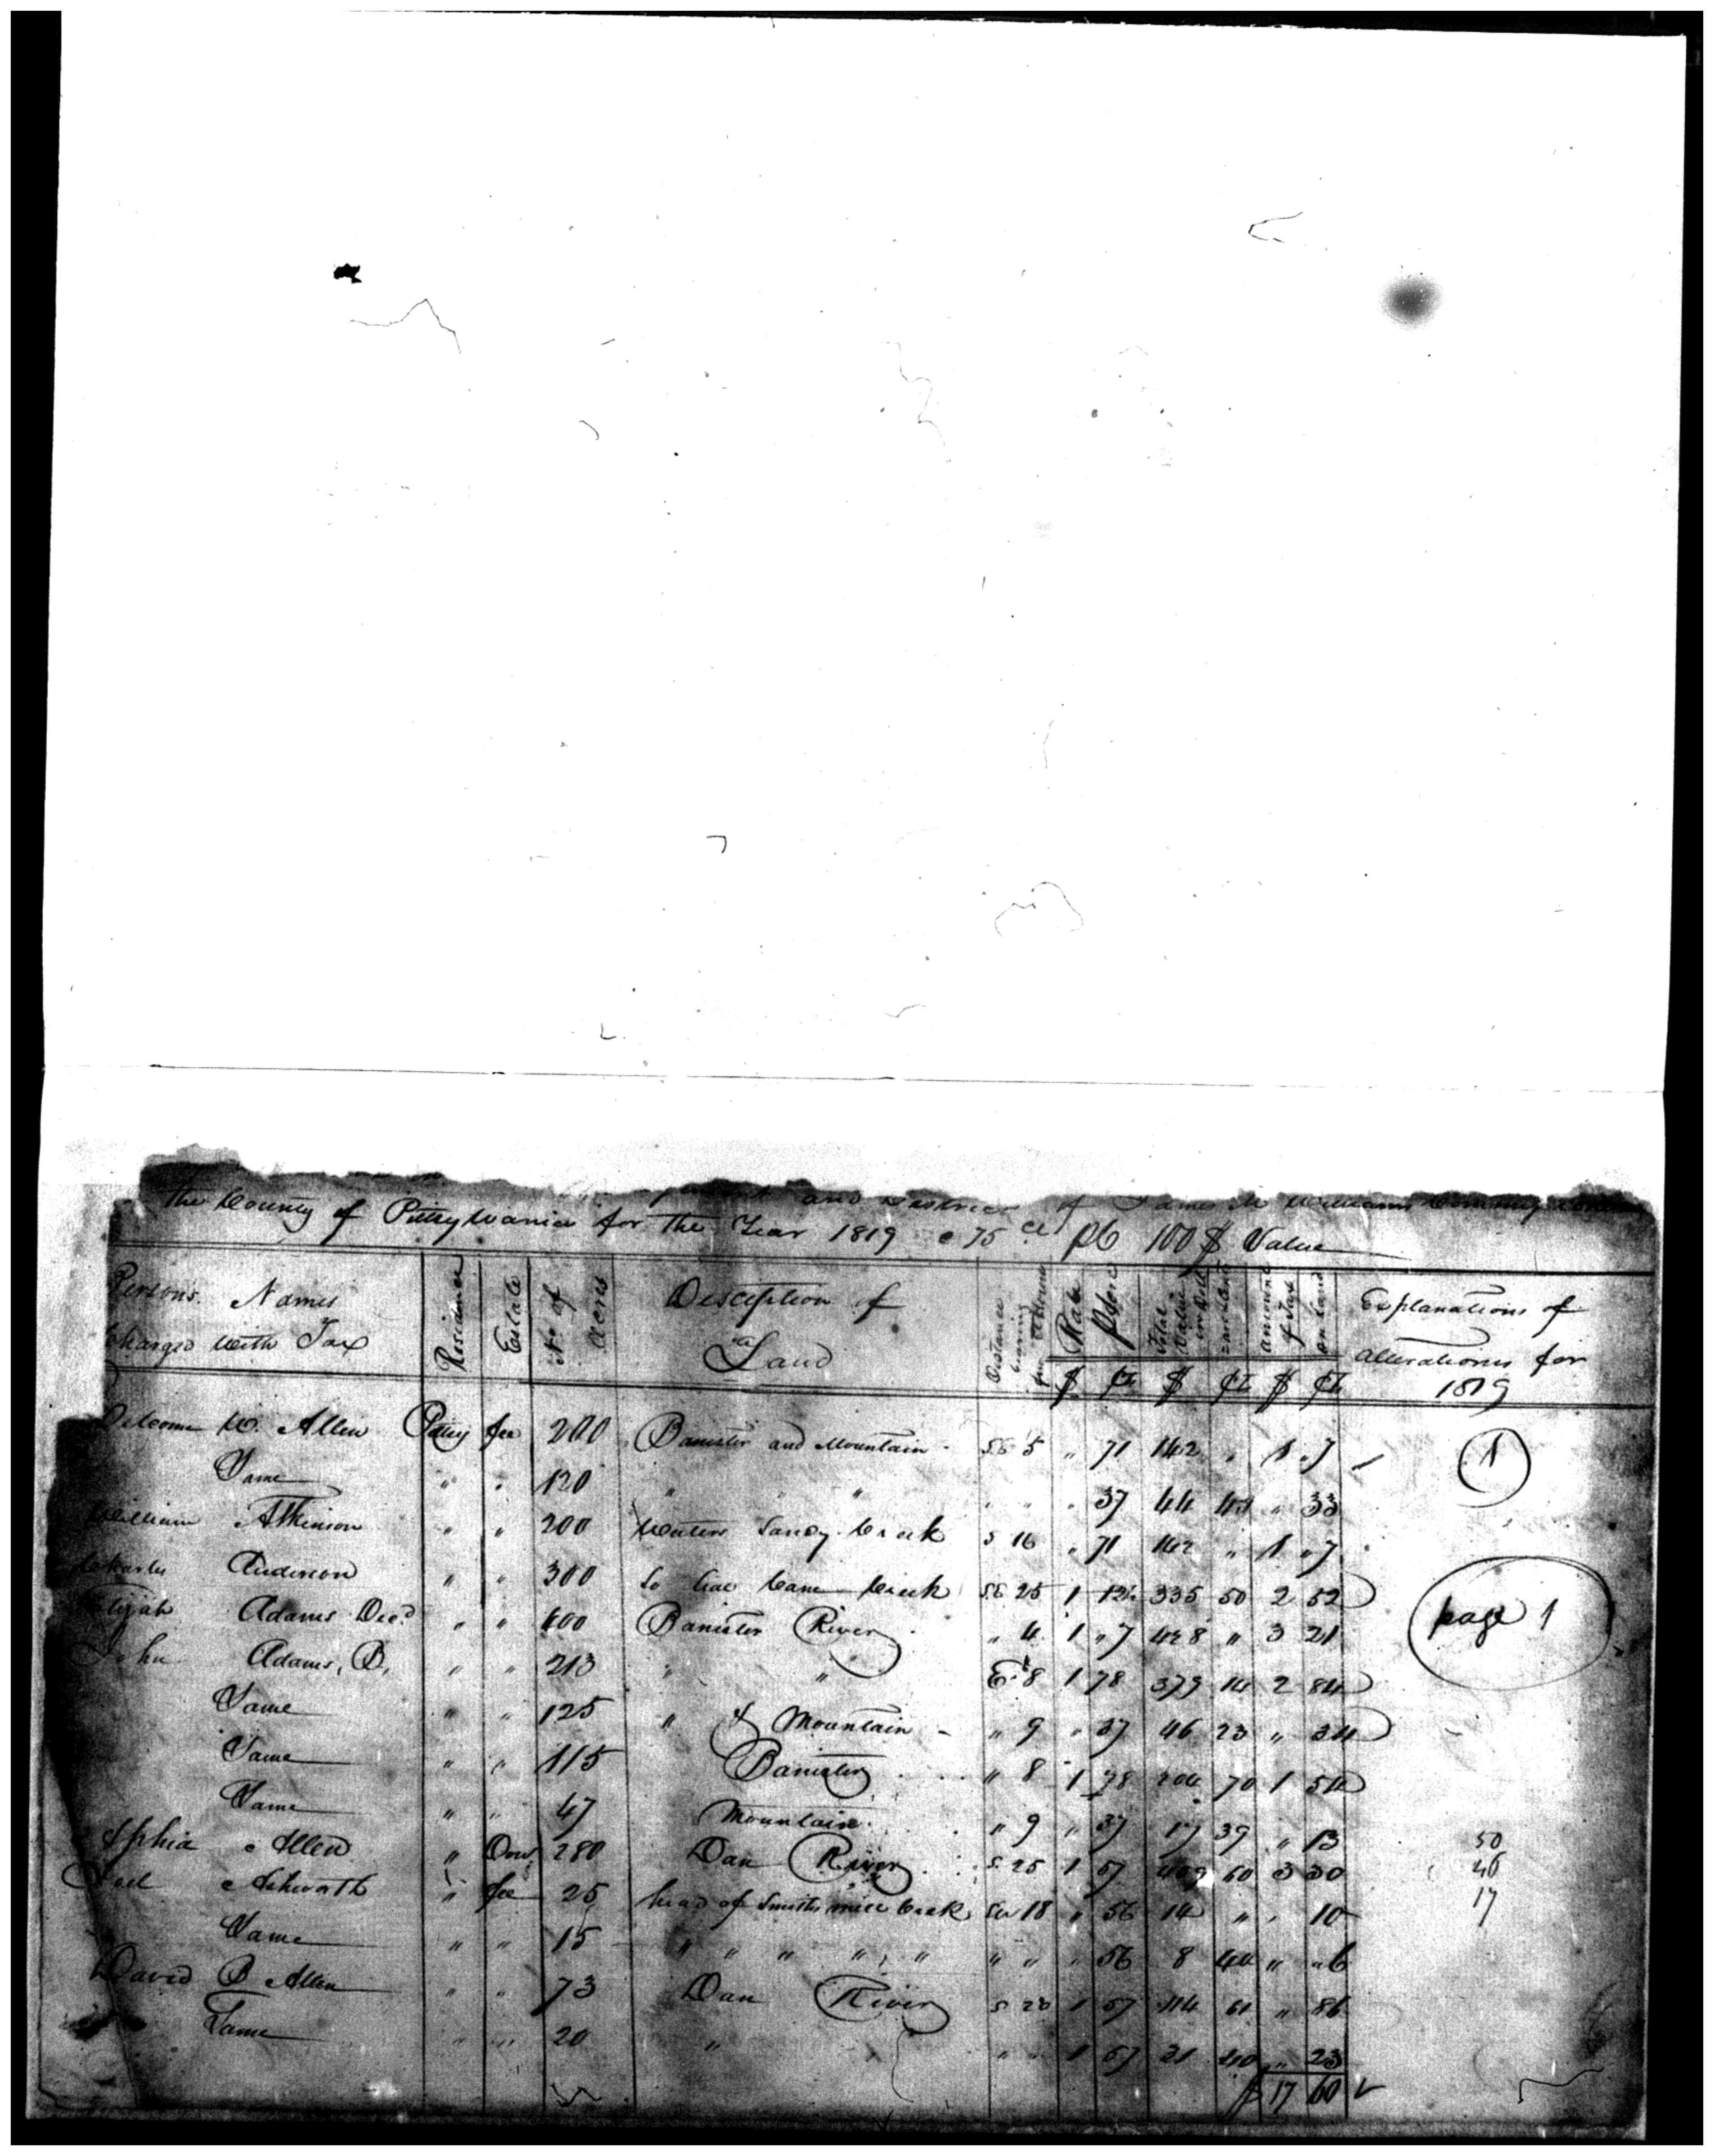 and District of James M Williams
the County of Pittsylvania for the Year 1819 @ 75 Ct P 100 $ Value
Persons Names Charged with Tax Residence Estate No of Acres Desciption of Land Distance bearing from Rate P Acre Total Value amount of Tax on Land Explanations of alterations for 1819
$ Ct $ Ct $ Ct
W. Allen Pitty fee 200 Banister and Mountain SE 5 " 71 142 " 1 " 7 1
Same " " 120 " " " " " 37 44 40 " 33
William Atkinson " " 200 Waters Sandy Creek S 16 " 71 142 " 1 " 7
Charles Anderson " " 300 Cane Creek SE 25 1 12 335 50 2 52
Elijah Adams Decd " " 400 Banister River " 4 1 " 7 428 " 3 21 page 1
John Adams, B, " " 213 " " E 8 1 78 379 14 2 84
Same " " 125 " & Mountain " 9 " 37 46 23 " 34
Same " " 115 Banister " 8 1 78 204 70 1 54
Same " " 47 Mountain " 9 " 37 17 39 " 13 50
Allen " Dow 280 Dan River S 25 1 57 439 60 3 30 46
Ashworth " fee 25 head of Smiths mill Creek SW 18 " 56 14 " " 10 17
Same " " 15 " " " " " " " " 56 8 40 " " 6
David B Allen " " 73 Dan River S 1 57 114 61 " 86
Same " " 20 " " " 1 57 31 40 " 23
$ 17 60